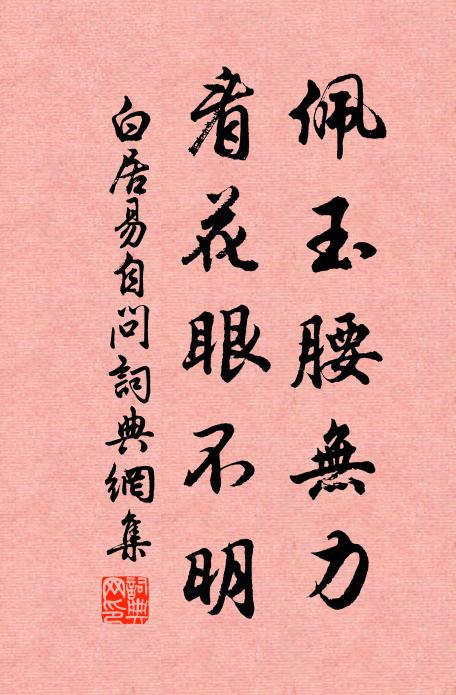 佩玉腰無力
看花眼不明
白居易自問詞典網集
詞典網印